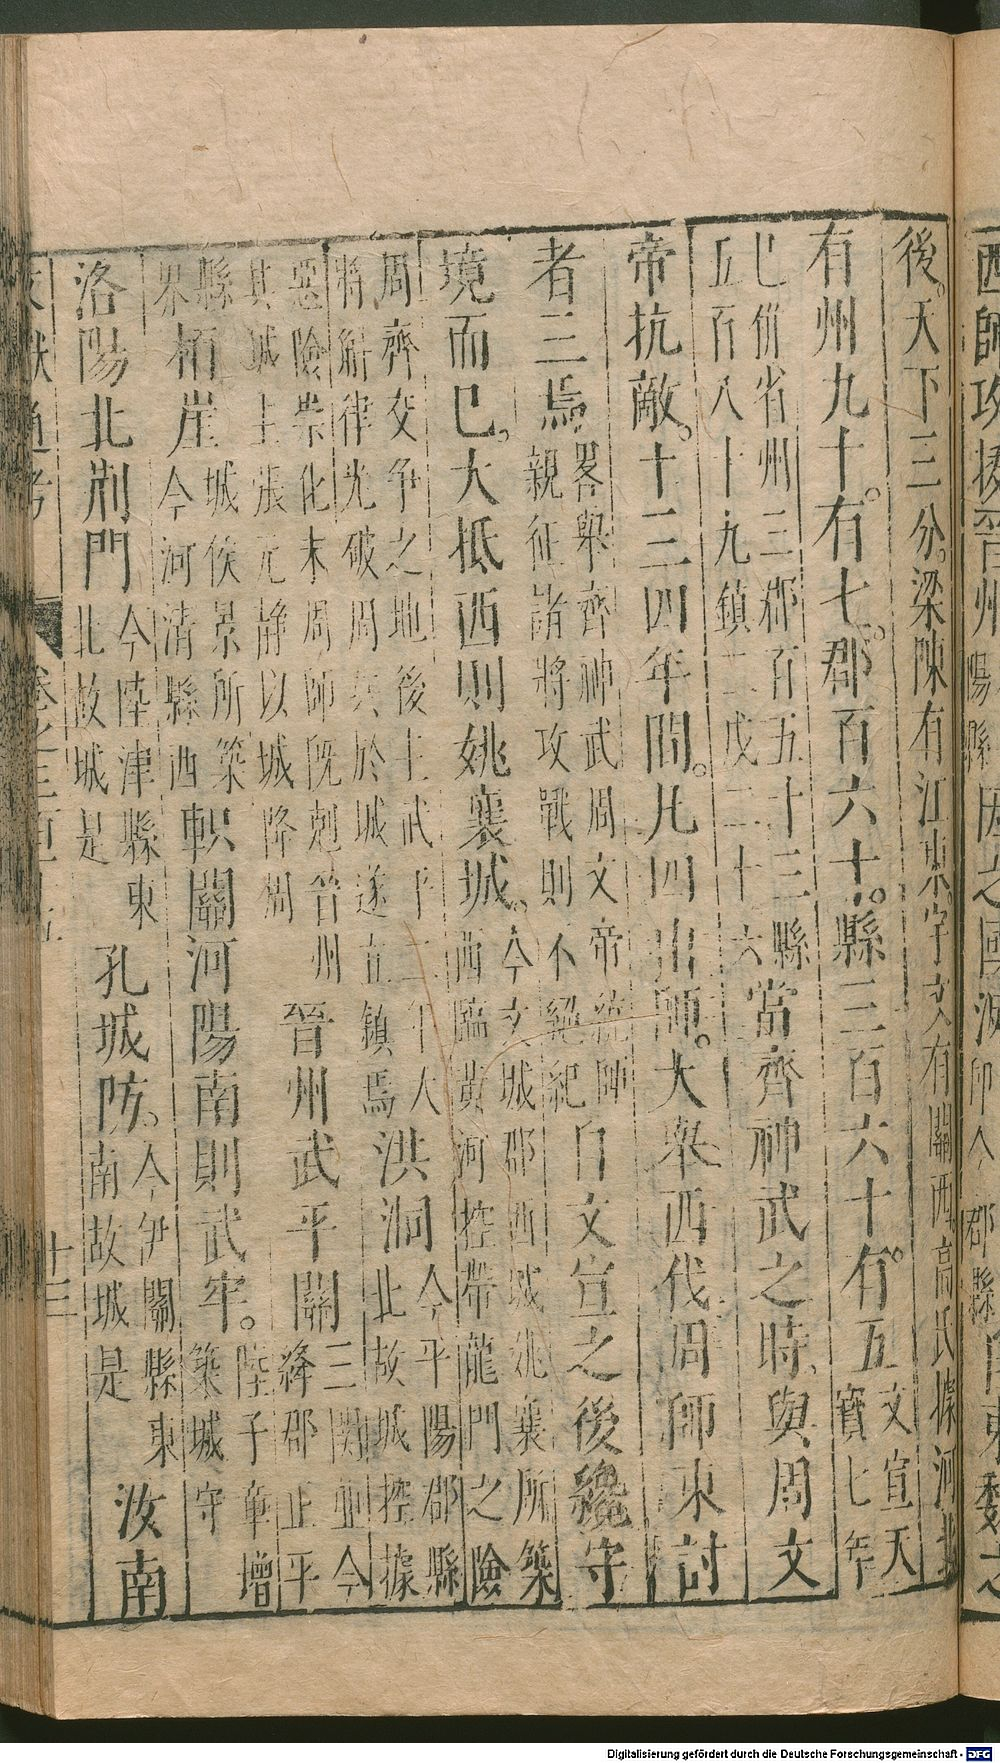 後天下三分梁陳有江東宇文有關西高氏據河北
有州九十有七郡百六十縣三百六十有五文宣天寶七年
已併省州三郡百五十三縣五百八十九鎮二戍二十六當齊神武之時與周文
帝抗敵十三四年間凡四出師大舉西伐周師東討
者三焉畧舉齊神武周文帝統師親征諸將攻戰則不絕紀自文宣之後纔守
境而已大抵西則姚襄城今文城郡西城姚襄所築西臨黄河控帶龍門之險
周齊交爭之地後主武平二年人將斛律光破周兵於城遂立鎮焉洪洞今平陽郡縣北故城控據
惡險崇化末周師既剋晉州其城主張元静以城降周晉州武平關三関並今絳郡正平
縣界栢崖城侯景所築今河清縣西軹關河陽南則武牢陸子章增築城守
洛陽北荆門今陸津縣東北故城是孔城防今伊闕縣東南故城是汝南
卷之三百
十三
Digitalisierung gefördert durch die Deutsche Forschungsgemeinschaft - DFG